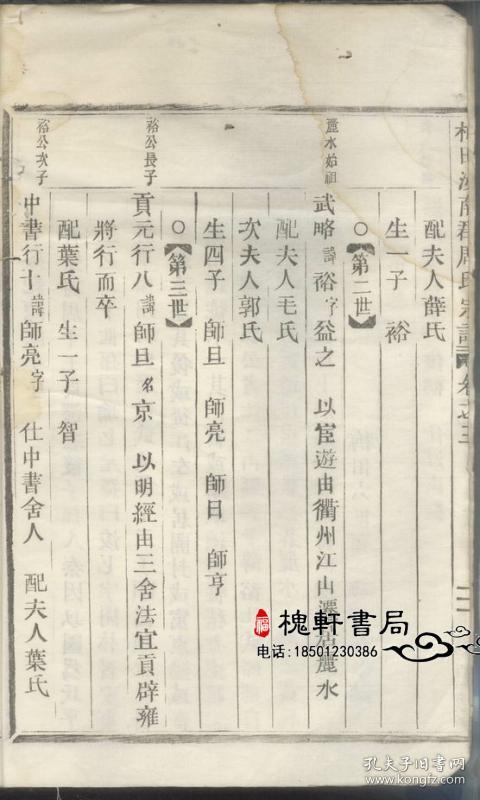 汝南郡周氏宗譜
配夫人薛氏
生一子 裕
○【第二世】
麗水始祖
武略 諱 裕 字 益之 以宦遊由衢州江山 居麗水
配夫人毛氏
次夫人郭氏
生四子 師旦 師亮 師日 師亨
○【第三世】
裕公長子
貢元行八 諱 師旦 名 京 以明經由三舍法宜貢辟雍
將行而卒
配葉氏 生一子 智
裕公次子
中書行十 諱 師亮 字 仕中書舍人 配夫人葉氏
福
槐軒書局
电话:18501230386
孔夫子旧书网
www.kongfz.com